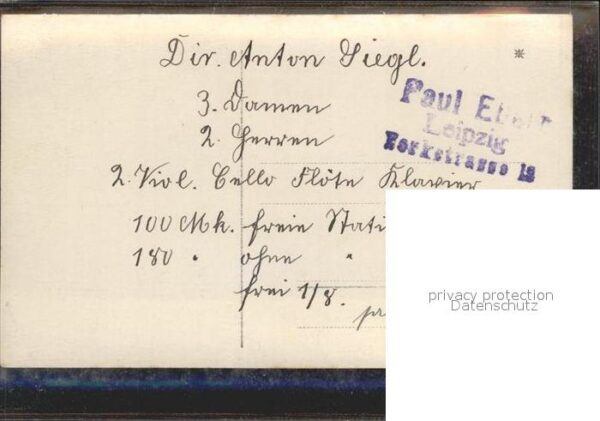 Dir. Anton Siegl.
*
3. Damen
2. Herren
2. Viol. Cello Flöte Klavier
100 Mk. freie Stati
180 " ohne "
frei 1/8.
Paul
Leipzig
Yorkstrasse
privacy protection
Datenschutz